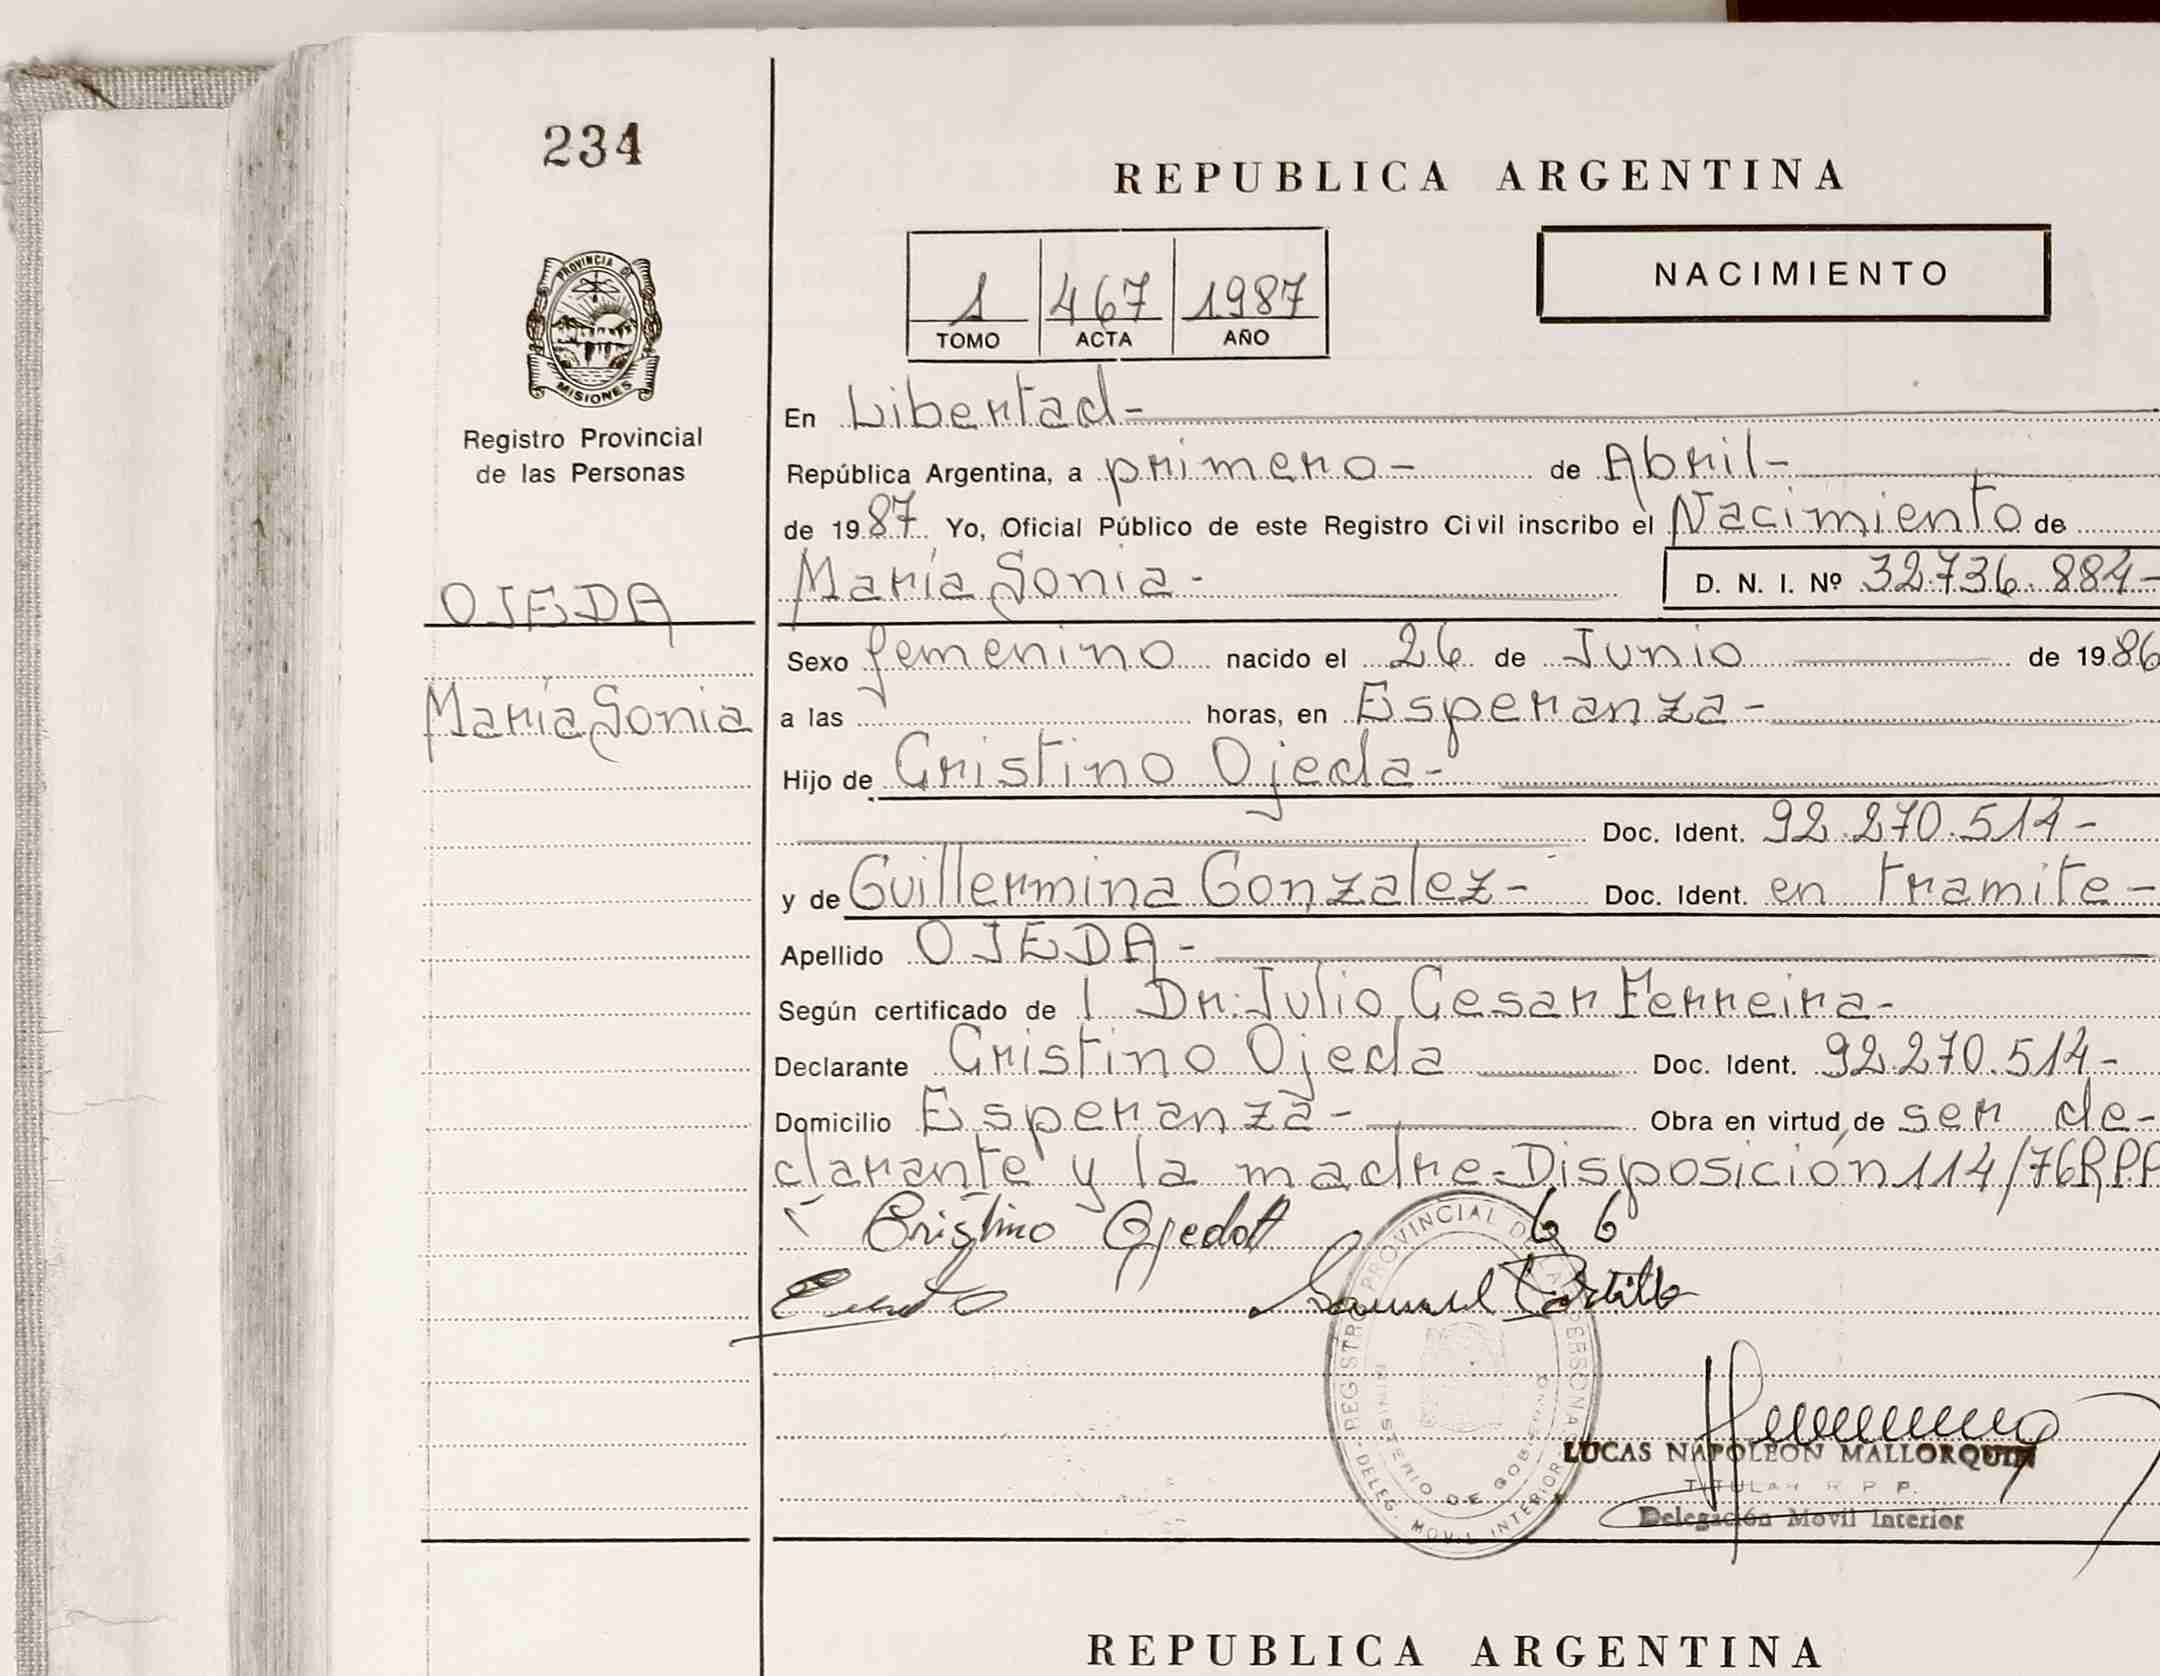 234
REPUBLICA ARGENTINA
NACIMIENTO
1 467 1987
TOMO ACTA AÑO
PROVINCIA DE
MISIONES
Registro Provincial
de las Personas
OJEDA
María Sonia
En Libertad-
República Argentina, a primero- de Abril-
de 1987 Yo, Oficial Público de este Registro Civil inscribo el Nacimiento de
María Sonia- D. N. I. Nº 32.736.884-
Sexo femenino nacido el 26 de Junio de 1986
a las horas, en Esperanza-
Hijo de Cristino Ojeda-
Doc. Ident. 92.270.514-
y de Guillermina Gonzalez- Doc. Ident. en tramite-
Apellido OJEDA-
Según certificado de l Dr. Julio Cesar Ferreira-
Declarante Cristino Ojeda Doc. Ident. 92.270.514-
Domicilio Esperanza- Obra en virtud de ser de-
clarante y la madre-Disposición 114/76RPP
Cristino Ojeda G G
Samuel Portillo
REGISTRO PROVINCIAL DE LAS PERSONAS
MINISTERIO DE GOBIERNO
DELEG. MOVIL INTERIOR
LUCAS NAPOLEON MALLORQUIN
TITULAR R P P.
Delegación Movil Interior
REPUBLICA ARGENTINA